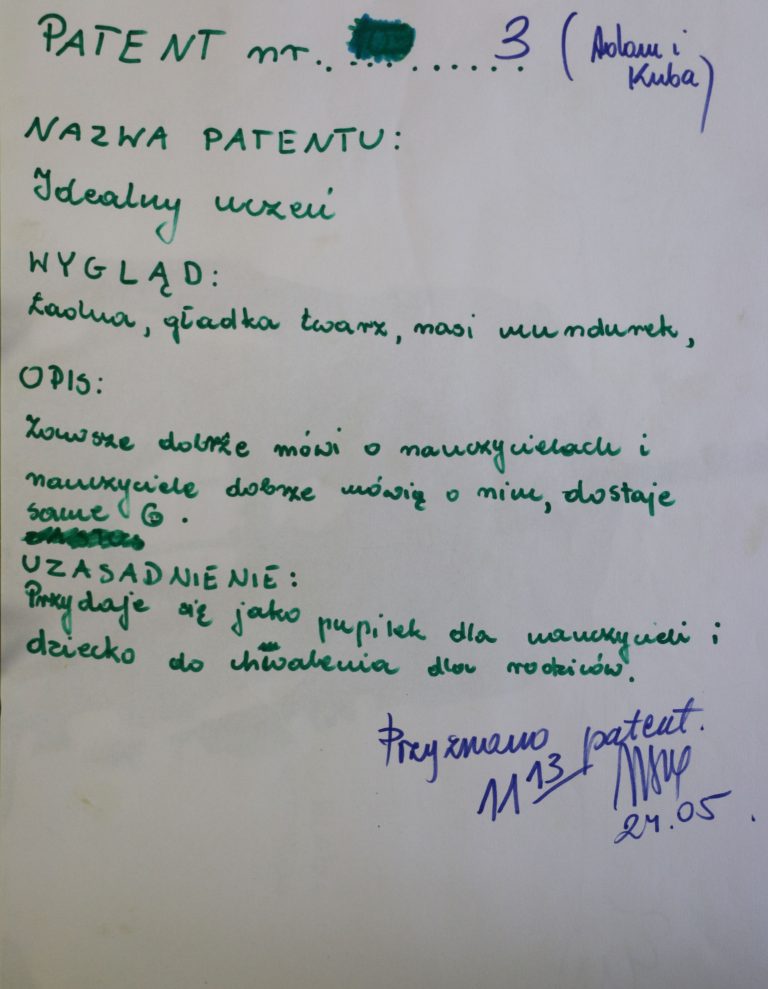 PATENT nr. ......... 3 (Adam i
Kuba)
NAZWA PATENTU:
Idealny uczeń
WYGLĄD:
Ładna, gładka twarz, nosi mundurek,
OPIS:
Zawsze dobrze mówi o nauczycielach i
nauczyciele dobrze mówią o nim, dostaje
same 6.
UZASADNIENIE:
Przydaje się jako pupilek dla nauczycieli i
dziecko do chwalenia dla rodziców.
Przyznano patent.
11 13
24.05.